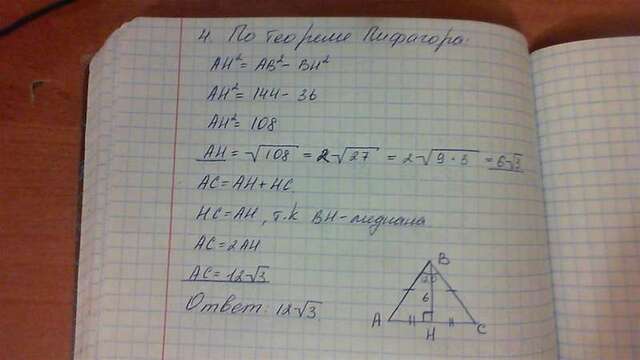 4. По теореме Пифагора:
AH² = AB² - BH²
AH² = 144 - 36
AH² = 108
AH = √108 = 2√27 = 2√9·3 = 6√3
AC = AH + HC
HC = AH, т.к BH - медиана
AC = 2AH
AC = 12√3
Ответ: 12√3
B
6
A
H
C